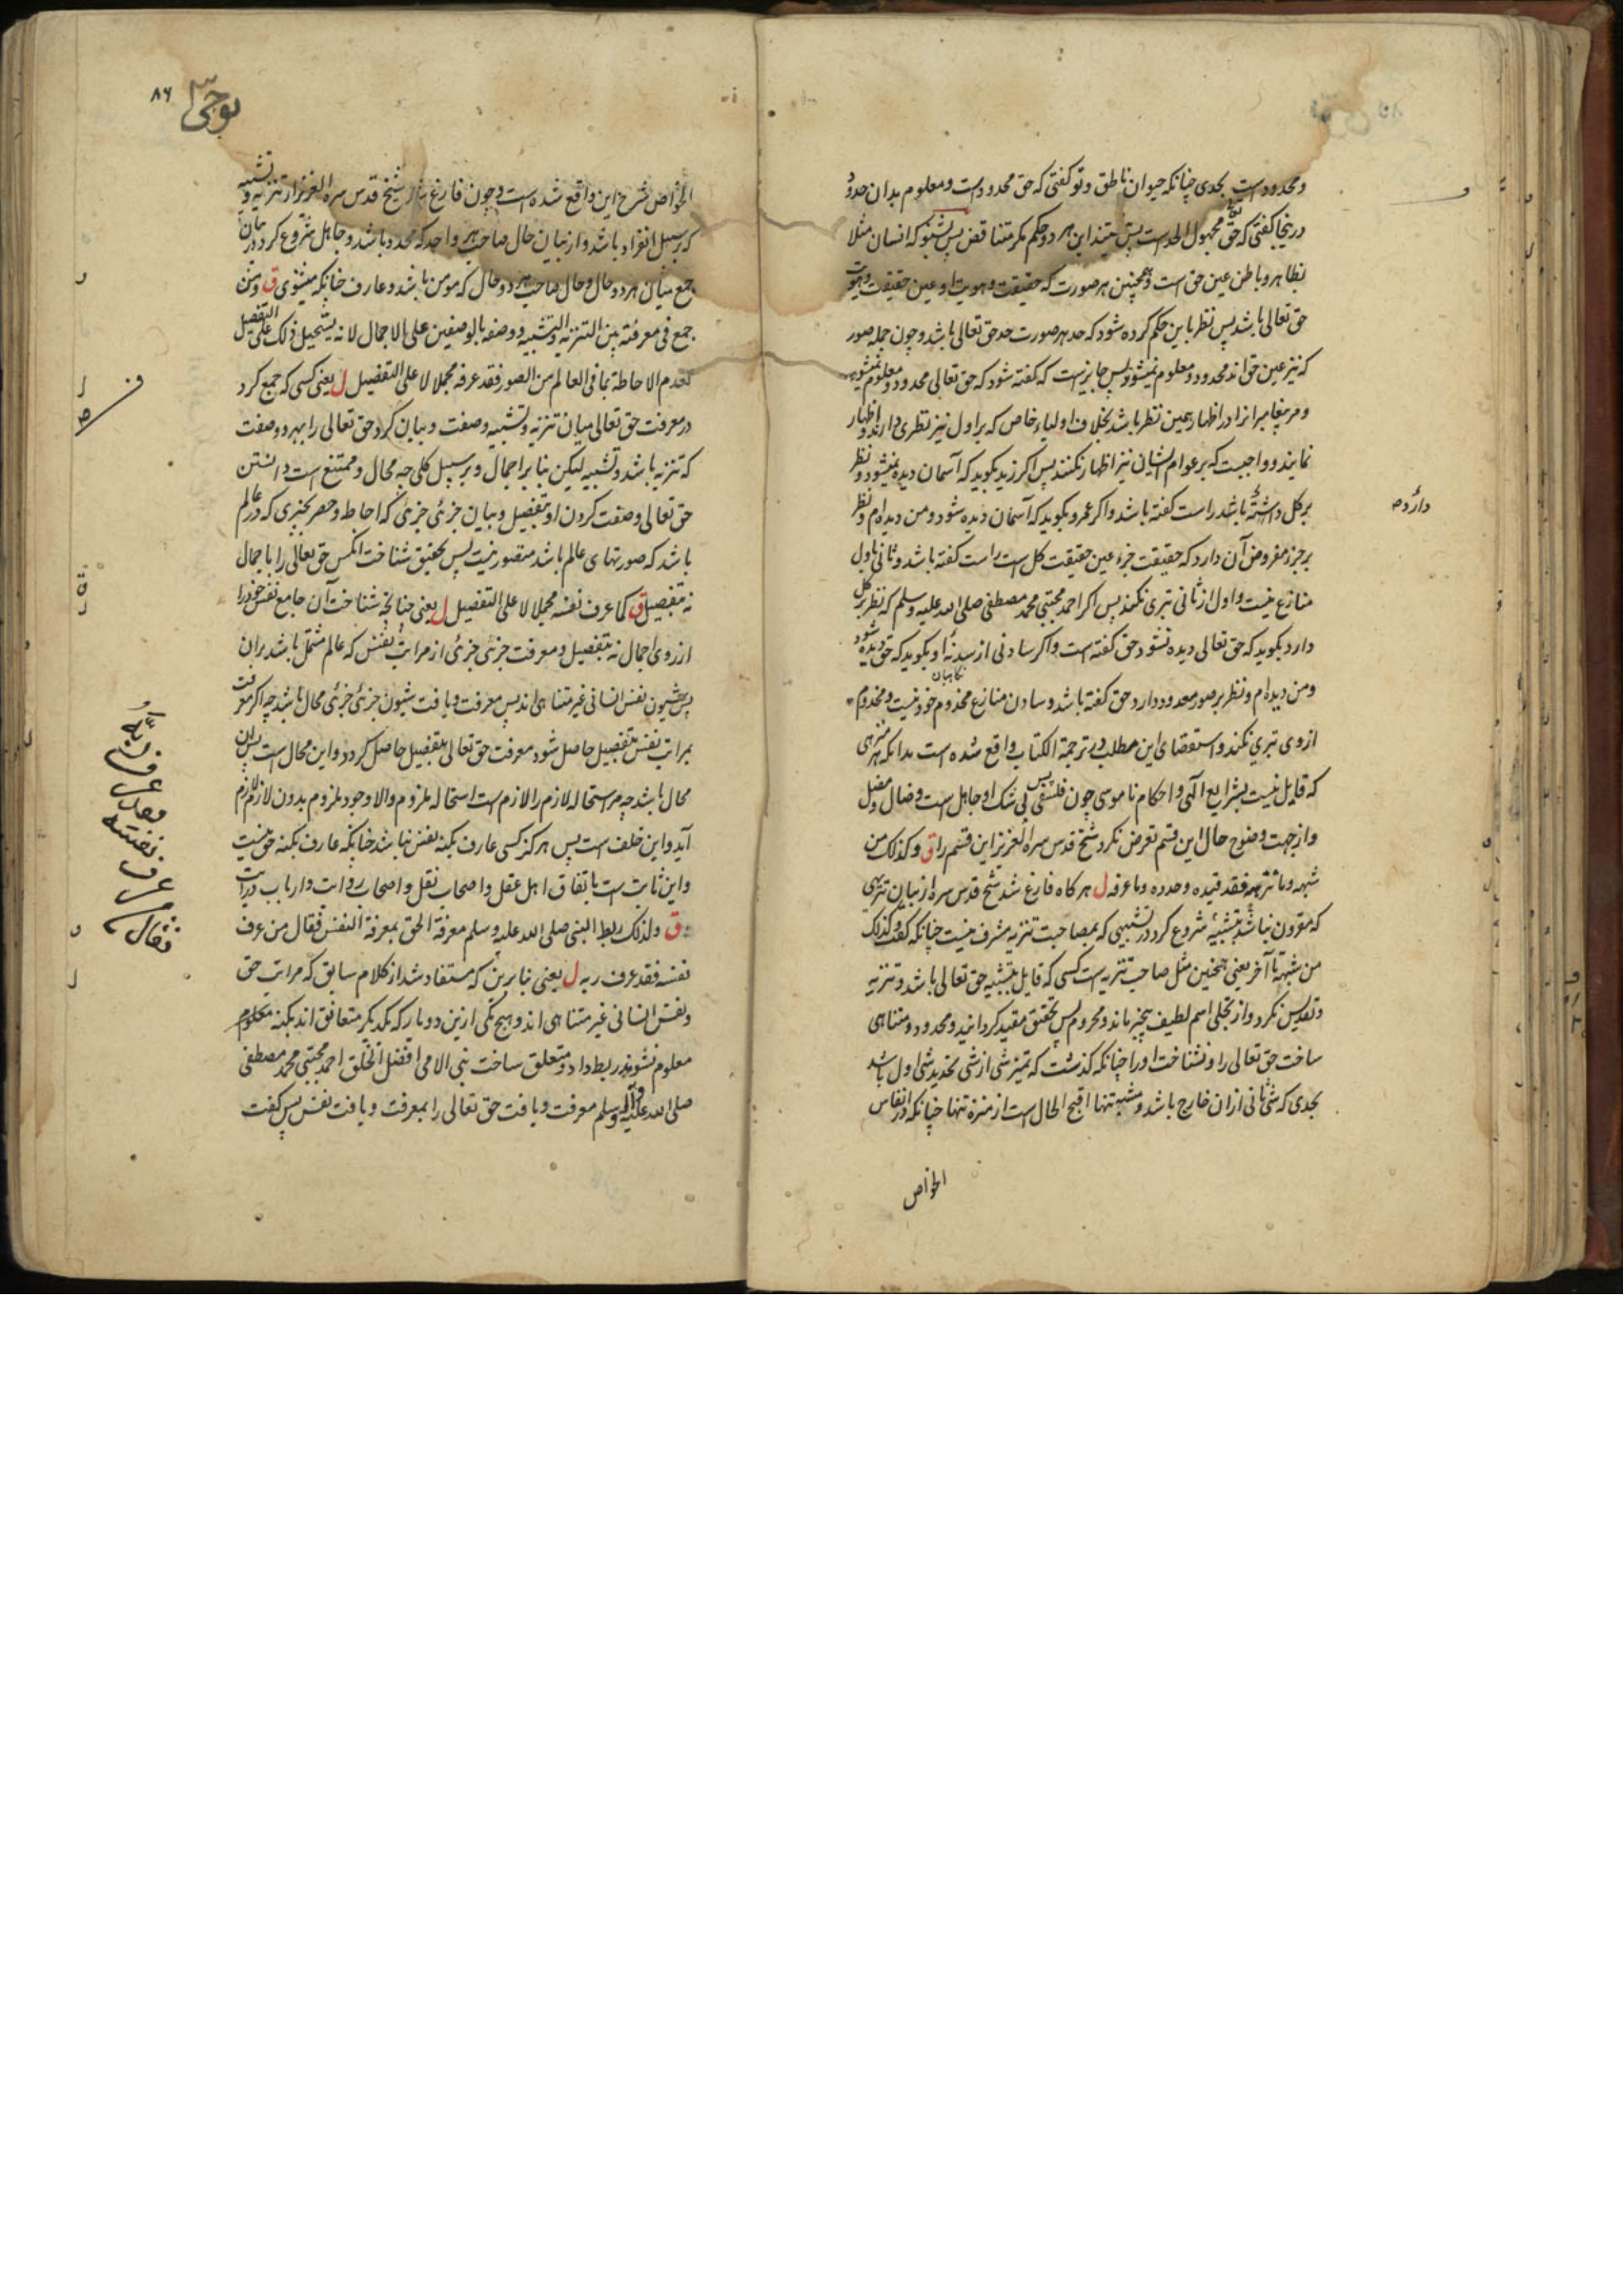 و محدودست بحدی چنانکه حیوان ناطق و تو کفتی که حق محدودست و معلوم بدان حدود
درینجا کفتی که حق تع مجهول الحدست پس نیستند این هر دو حکم مکر متناقض پس بشنو که انسان مثلا
بظاهر و باطن عین حق است و همچنین هر صورت که حقیقت و هویت او عین حقیقت و هویت
حق تعالی باشد پس نظر باین حکم کرده شود که حد هر صورت حد حق تعالی باشد و چون جمله صور
که نیز عین حق اند محدود و معلوم نمیشود پس جایزست که کفته شود که حق تعالی محدود و معلوم نمیشود
و مر پیغامبرانرا در اظهار همین نظر باشد بخلاف اولیاء خاص که بر اول نیز نظری دارند و اظهار
نمایند و واجبست که بر عوام ایشان نیز اظهار نکنند پس اکر زید بکوید که آسمان دیده نمیشود و نظر
بر کل داشته باشد راست کفته باشد و اکر عمرو بکوید که آسمان دیده شود و من دیده‌ام و نظر
دارد صه
بر جزء مفروض آن دارد که حقیقت جزء عین حقیقت کل است راست کفته باشد و ثانی باول
منازع نیست و اول از ثانی تبری نکند پس اکر احمد مجتبی محمد مصطفی صلی الله علیه وسلم که نظر بر کل
دارد بکوید که حق تعالی دیده نشود حق کفته است و اکر سادنی از سدنهٔ او بکوید که حق دیده شود
و من دیده‌ام و نظر بر صور معدود دارد حق کفته باشد و سادن منازع مخدوم خود نیست و مخدوم
ازوی تبری نکند و استقصای این مطلب در ترجمة الکتاب واقع شده است بدانکه هر منزهی
که قایل نیست بشرایع الهی و احکام ناموسی چون فلسفی پس بی شک او جاهل است و ضال و مضل
و از جهت وضوح حال این قسم تعرض نکرد شیخ قدس سره العزیز این قسم را ق وکذلک من
شبهه وما نزهه فقد قیده وحدده وما عرفه ل هر کاه فارغ شد شیخ قدس سره از بیان تنزیهی
که مقرون نباشد بتشبیه شروع کرد در تشبیهی که بمصاحبت تنزیه مشرف نیست چنانکه کفت وکذلک
من شبهه تا آخر یعنی همچنین مثل صاحب تنزیه است کسی که قایل بتشبیه حق تعالی باشد و تنزیه
و تقدیس نکرد و از تجلی اسم لطیف بیخبر ماند و محروم پس بتحقیق مقید کردانید و محدود و متناهی
ساخت حق تعالی را و نشناخت او را چنانکه کذشت که تمیز شی از شی تحدید شی اول باشد
بحدی که شی ثانی ازان خارج باشد و مشبه تنها اقبح الحال است از منزه تنها چنانکه در انفاس
الخواص
٨٦
الخواص شرح این واقع شده است و چون فارغ شد شیخ قدس سره العزیز از تنزیه و تشبیه
که بر سبیل انفراد باشد و از بیان حال صاحب هر واحد که محدد باشد و جاهل شروع کرد در بیان
جمع میان هر دو حال و حال صاحب هر دو حال که مومن باشد و عارف چنانکه میشنوی ق ومن
جمع فی معرفته بین التنزیه والتشبیه ووصفه بالوصفین علی الاجمال لانه یستحیل ذلک علی التفصیل
لعدم الاحاطة بما فی العالم من الصور فقد عرفه مجملا لا علی التفصیل ل یعنی کسی که جمع کرد
در معرفت حق تعالی میان تنزیه و تشبیه وصفت و بیان کرد حق تعالی را بهر دو صفت
که تنزیه باشد و تشبیه لیکن بنا بر اجمال و بر سبیل کلی چه محال و ممتنع است دانستن
حق تعالی و صفت کردن او بتفصیل و بیان جزئی جزئی که احاطه و حصر بخبری که در عالم
باشد که صورتهای عالم باشد متصور نیست پس بتحقیق شناخت انکس حق تعالی را باجمال
نه بتفصیل ق کما عرف نفسه مجملا لا علی التفصیل ل یعنی چنانچه شناخت آن جامع نفس خود را
از روی اجمال نه بتفصیل و معرفت جزئی جزئی از مراتب نفس که عالم مشتمل باشد بران
پس شیون نفس انسانی غیر متناهی اند پس معرفت و یافت شیون جزئی جزئی محال باشد چه اکر معرفت
بمراتب نفس بتفصیل حاصل شود معرفت حق تعالی بتفصیل حاصل کردد و این محال است پس ان
محال باشد چه مر استحاله لازم را لازم است استحاله ملزوم والا وجود ملزوم بدون لازم لازم
آید و این خلف است پس هرکز کسی عارف بکنه نفس نباشد چنانکه عارف بکنه حق نیست
و این ثابت است باتفاق اهل عقل و اصحاب نقل و اصحاب روایت و ارباب درایت
ق ولذلک ربط النبی صلی الله علیه وسلم معرفة الحق بمعرفة النفس فقال من عرف
نفسه فقد عرف ربه ل یعنی بنا برین که مستفاد شد از کلام سابق که مراتب حق
و نفس انسانی غیر متناهی اند و هیچ یکی ازین دو یار که یکدیکر متعانق اند بکنه معلوم
معلوم نشوند ربط داد و متعلق ساخت نبی الامی افضل الخلق احمد مجتبی محمد مصطفی
صلی الله علیه واله وسلم معرفت و یافت حق تعالی را بمعرفت و یافت نفس پس کفت
فقال من عرف نفسه فقد عرف ربه